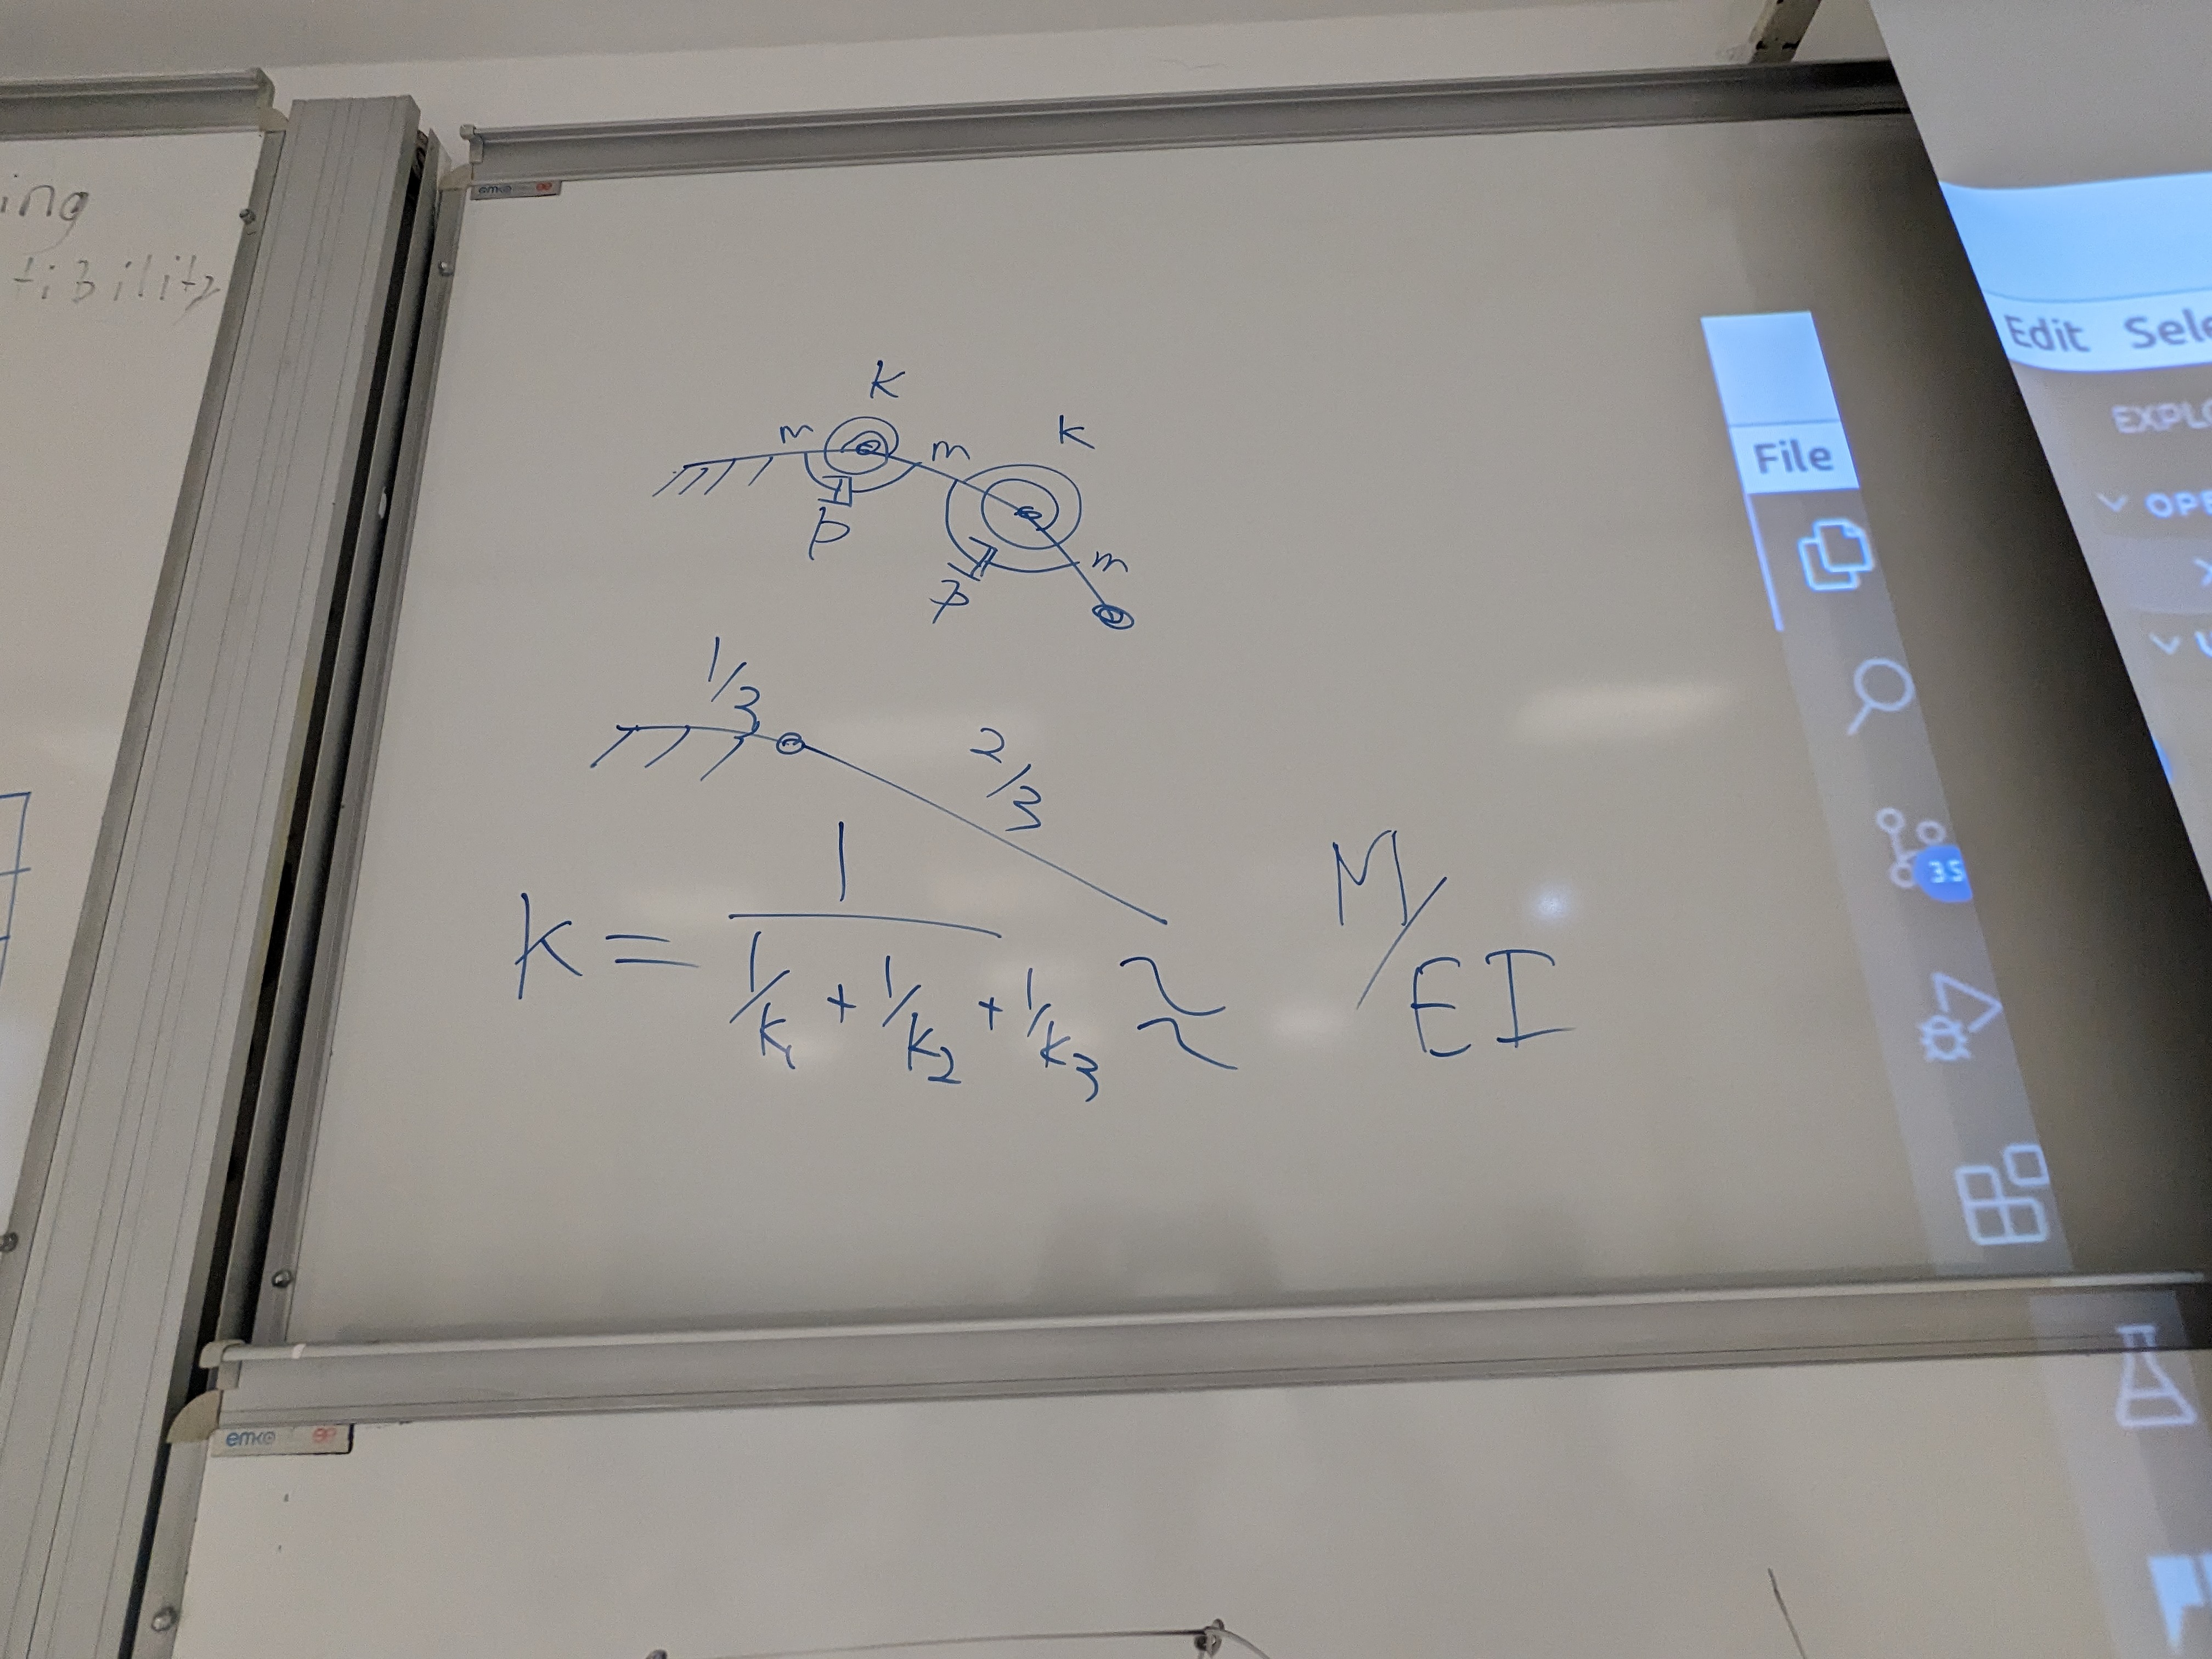 ing
tibility
emko
K
K
m
m
m
p
p
1/3
2/3
K = 1 / (1/K1 + 1/K2 + 1/K3) ≈ M/EI
Edit Sele
EXPLO
File
OPE
35
emko